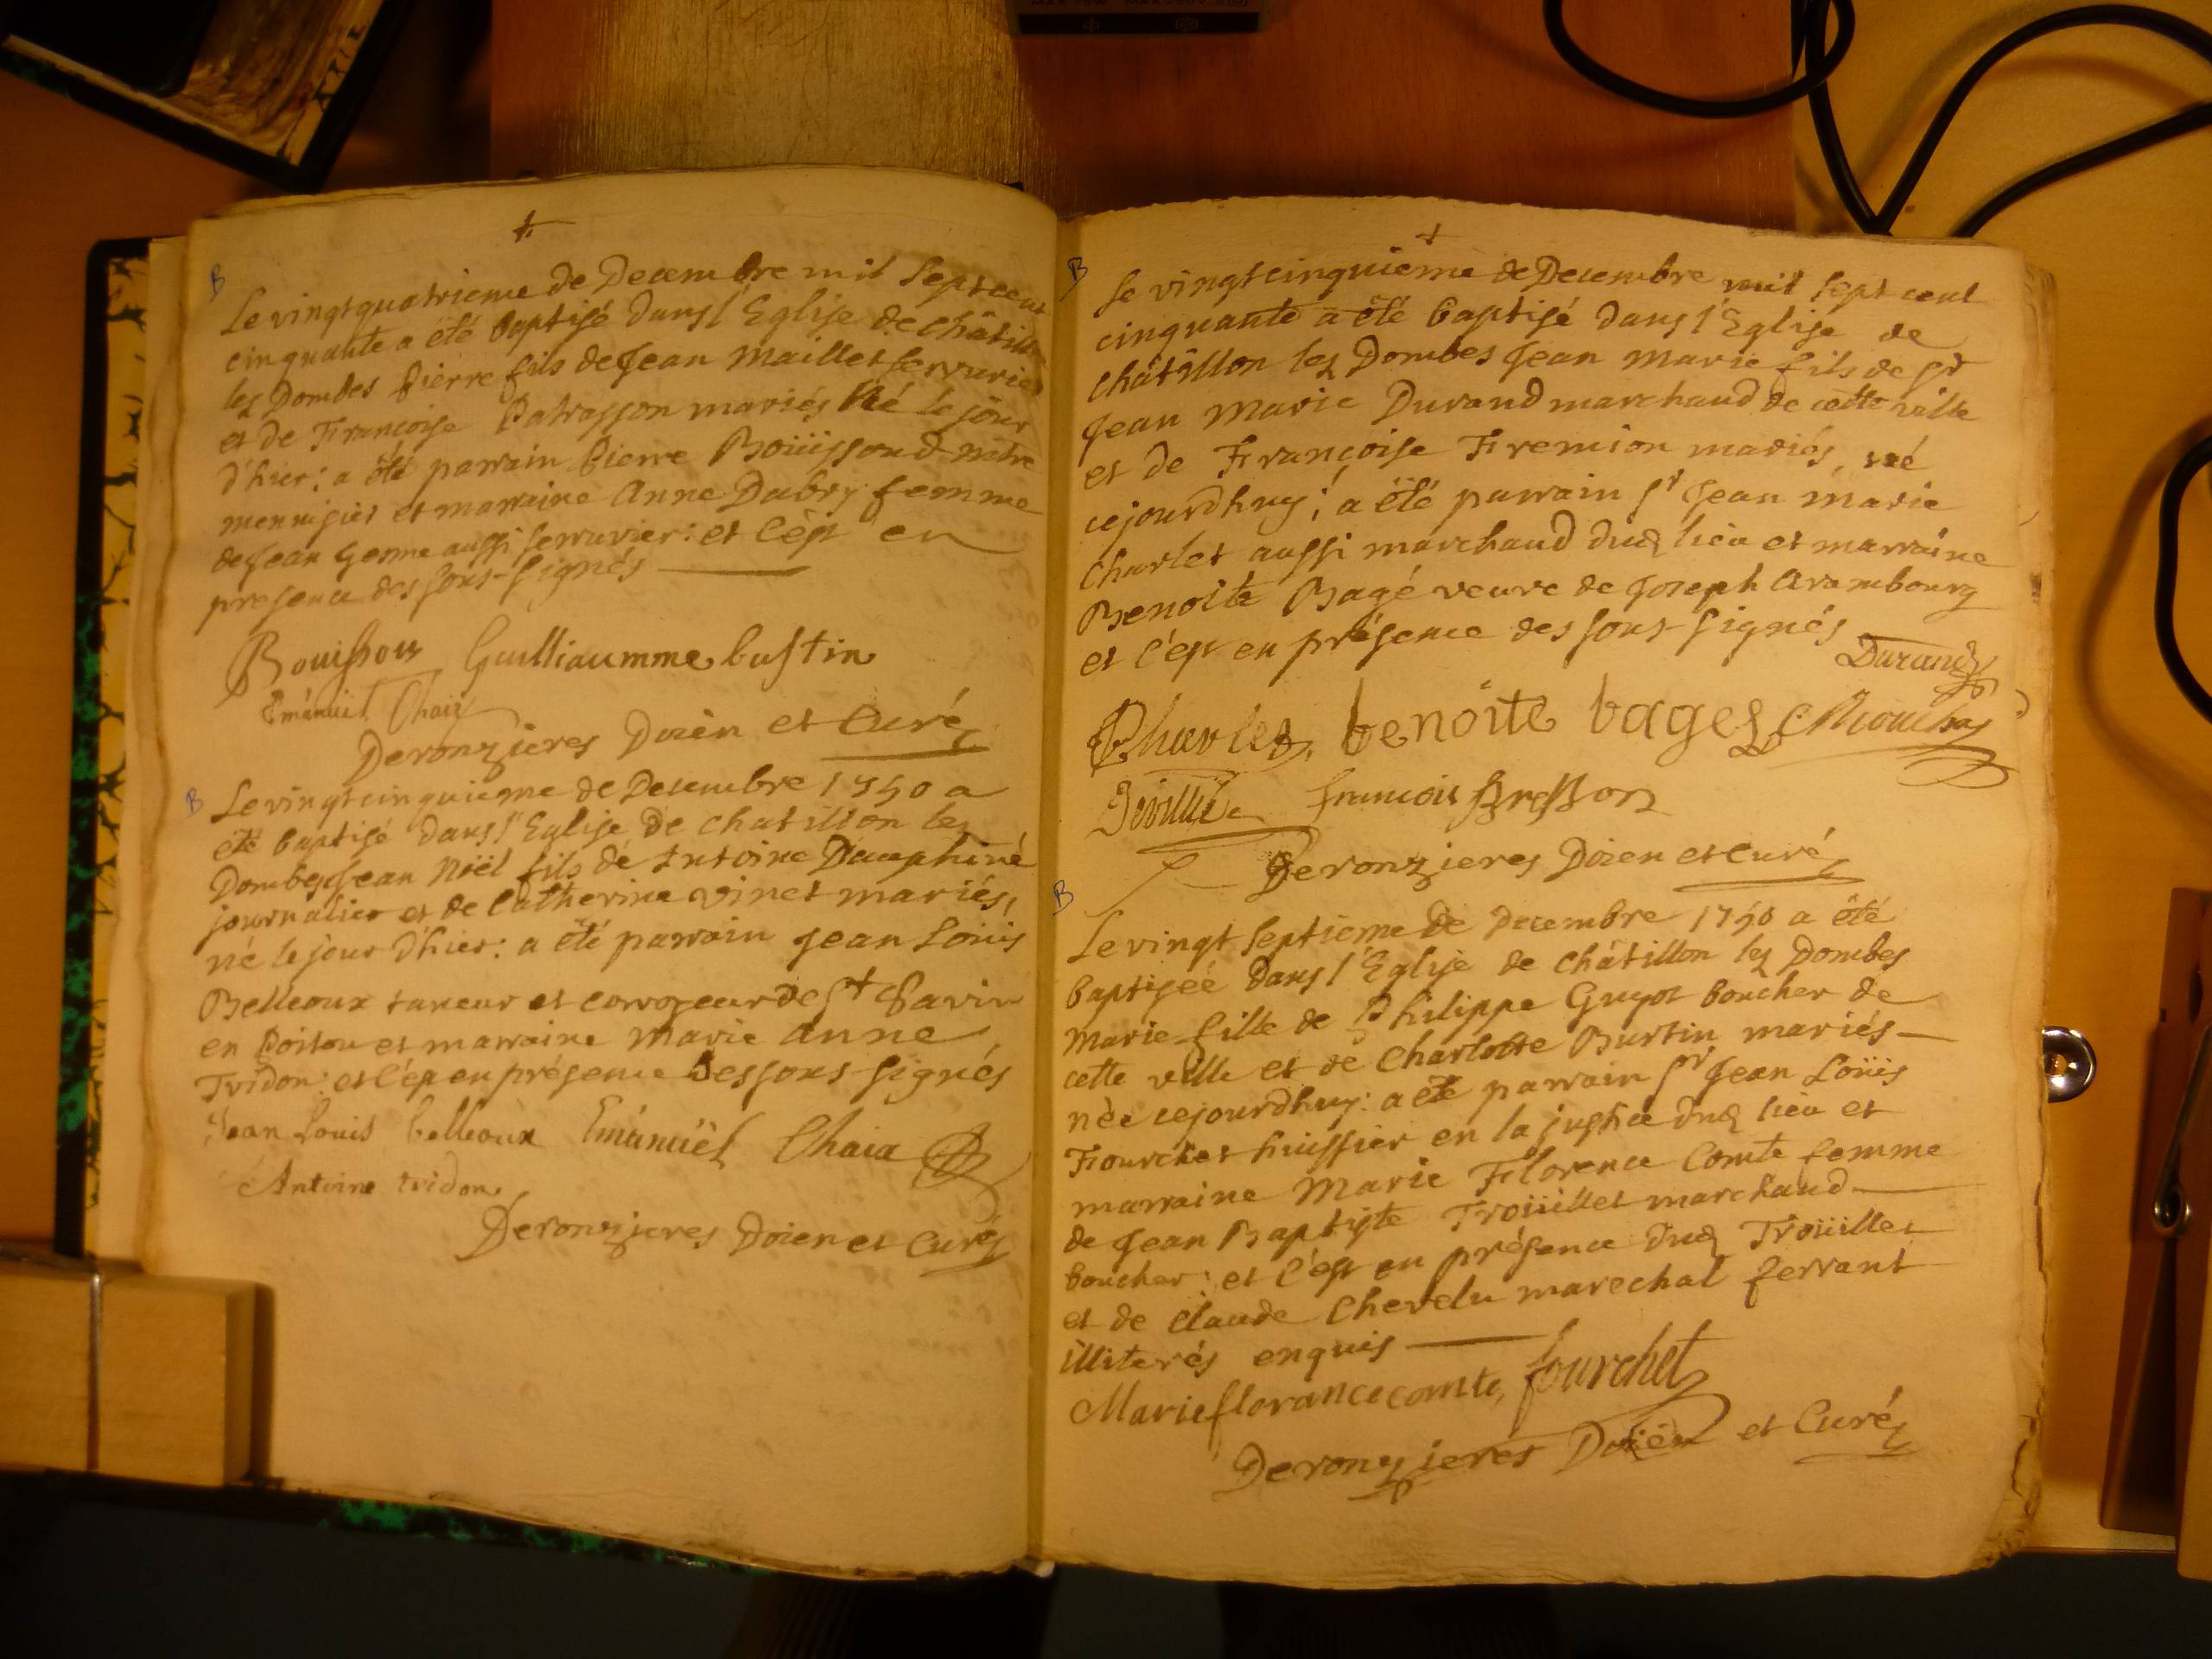 B
Le vingtquatrieme de Decembre mil sept cent
cinquante a été baptisé dans l'Eglise de châtillon
les Dombes pierre fils de Jean Maillet serrurier
et de Francoise Patrasson mariés Né le jour
d'hier; a été parrain pierre Boüissoud notre
menuisier et marraine Anne Dubry femme
de Jean Genne aussi serrurier: et c'est en
presence des sous-signés
Bouissou Guilliaumme bustin
Emanuel Chaiz
Deronzieres Doien et Curé
B
Le vingtcinquieme de Decembre 1750 a
été baptisé dans l'Eglise de chatillon les
Dombes Jean Noël fils de Antoine Dauphiné
journalier et de Catherine vinet mariés,
né le jour d'hier: a été parrain Jean Loüis
Belleoux taneur et corroyeur de St Savin
en Poitou et marraine Marie Anne
Tridon: et c'est en présence des sous-signés
Jean Louis belleoux Emanuel Chaia
Antoine tridon
Deronzieres Doien et Curé
B
Le vingtcinquieme de Decembre mil sept cent
cinquante a été baptisé dans l'Eglise de
châtillon les Dombes Jean Marie fils de Sr
Jean Marie Durand marchand de cette ville
et de Françoise Fremion mariés, né
cejourdhuy; a été parrain Sr Jean Marie
Charlet aussi marchand dud lieu et marraine
Benoite Bagé veuve de Joseph Arambourg
et c'est en présence des sous-signés
Durand
Charlet, benoite bages
françois Bresson
Deronzieres Doien et Curé
B
Le vingt septieme de Decembre 1750 a été
baptiseé dans l'Eglise de châtillon les Dombes
Marie fille de Philippe Guyot boucher de
cette ville et de Charlotte Burtin mariés
née cejourdhuy: a été parrain Sr Jean Loüis
Fourchet huissier en la justice dud lieu et
marraine Marie Florence Comte femme
de Jean Baptiste Troüillet marchand
boucher: et c'est en présence dud Troüillet
et de claude Chevelu marechal ferrant
illiterés enquis
Marieflorancecomte, fourchet
Deronzieres Doien et Curé